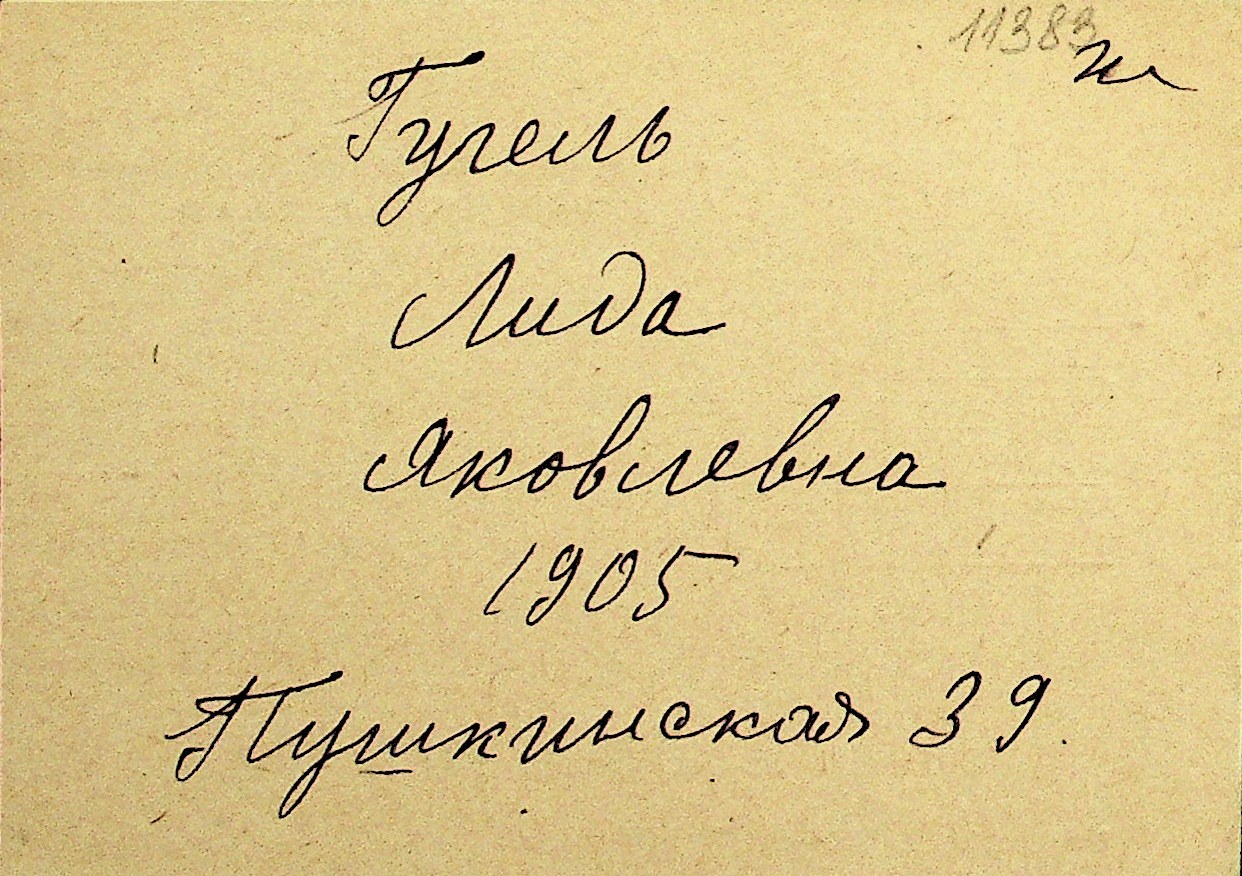 11383
Гугель
Лида
Яковлевна
1905
Пушкинская 39.